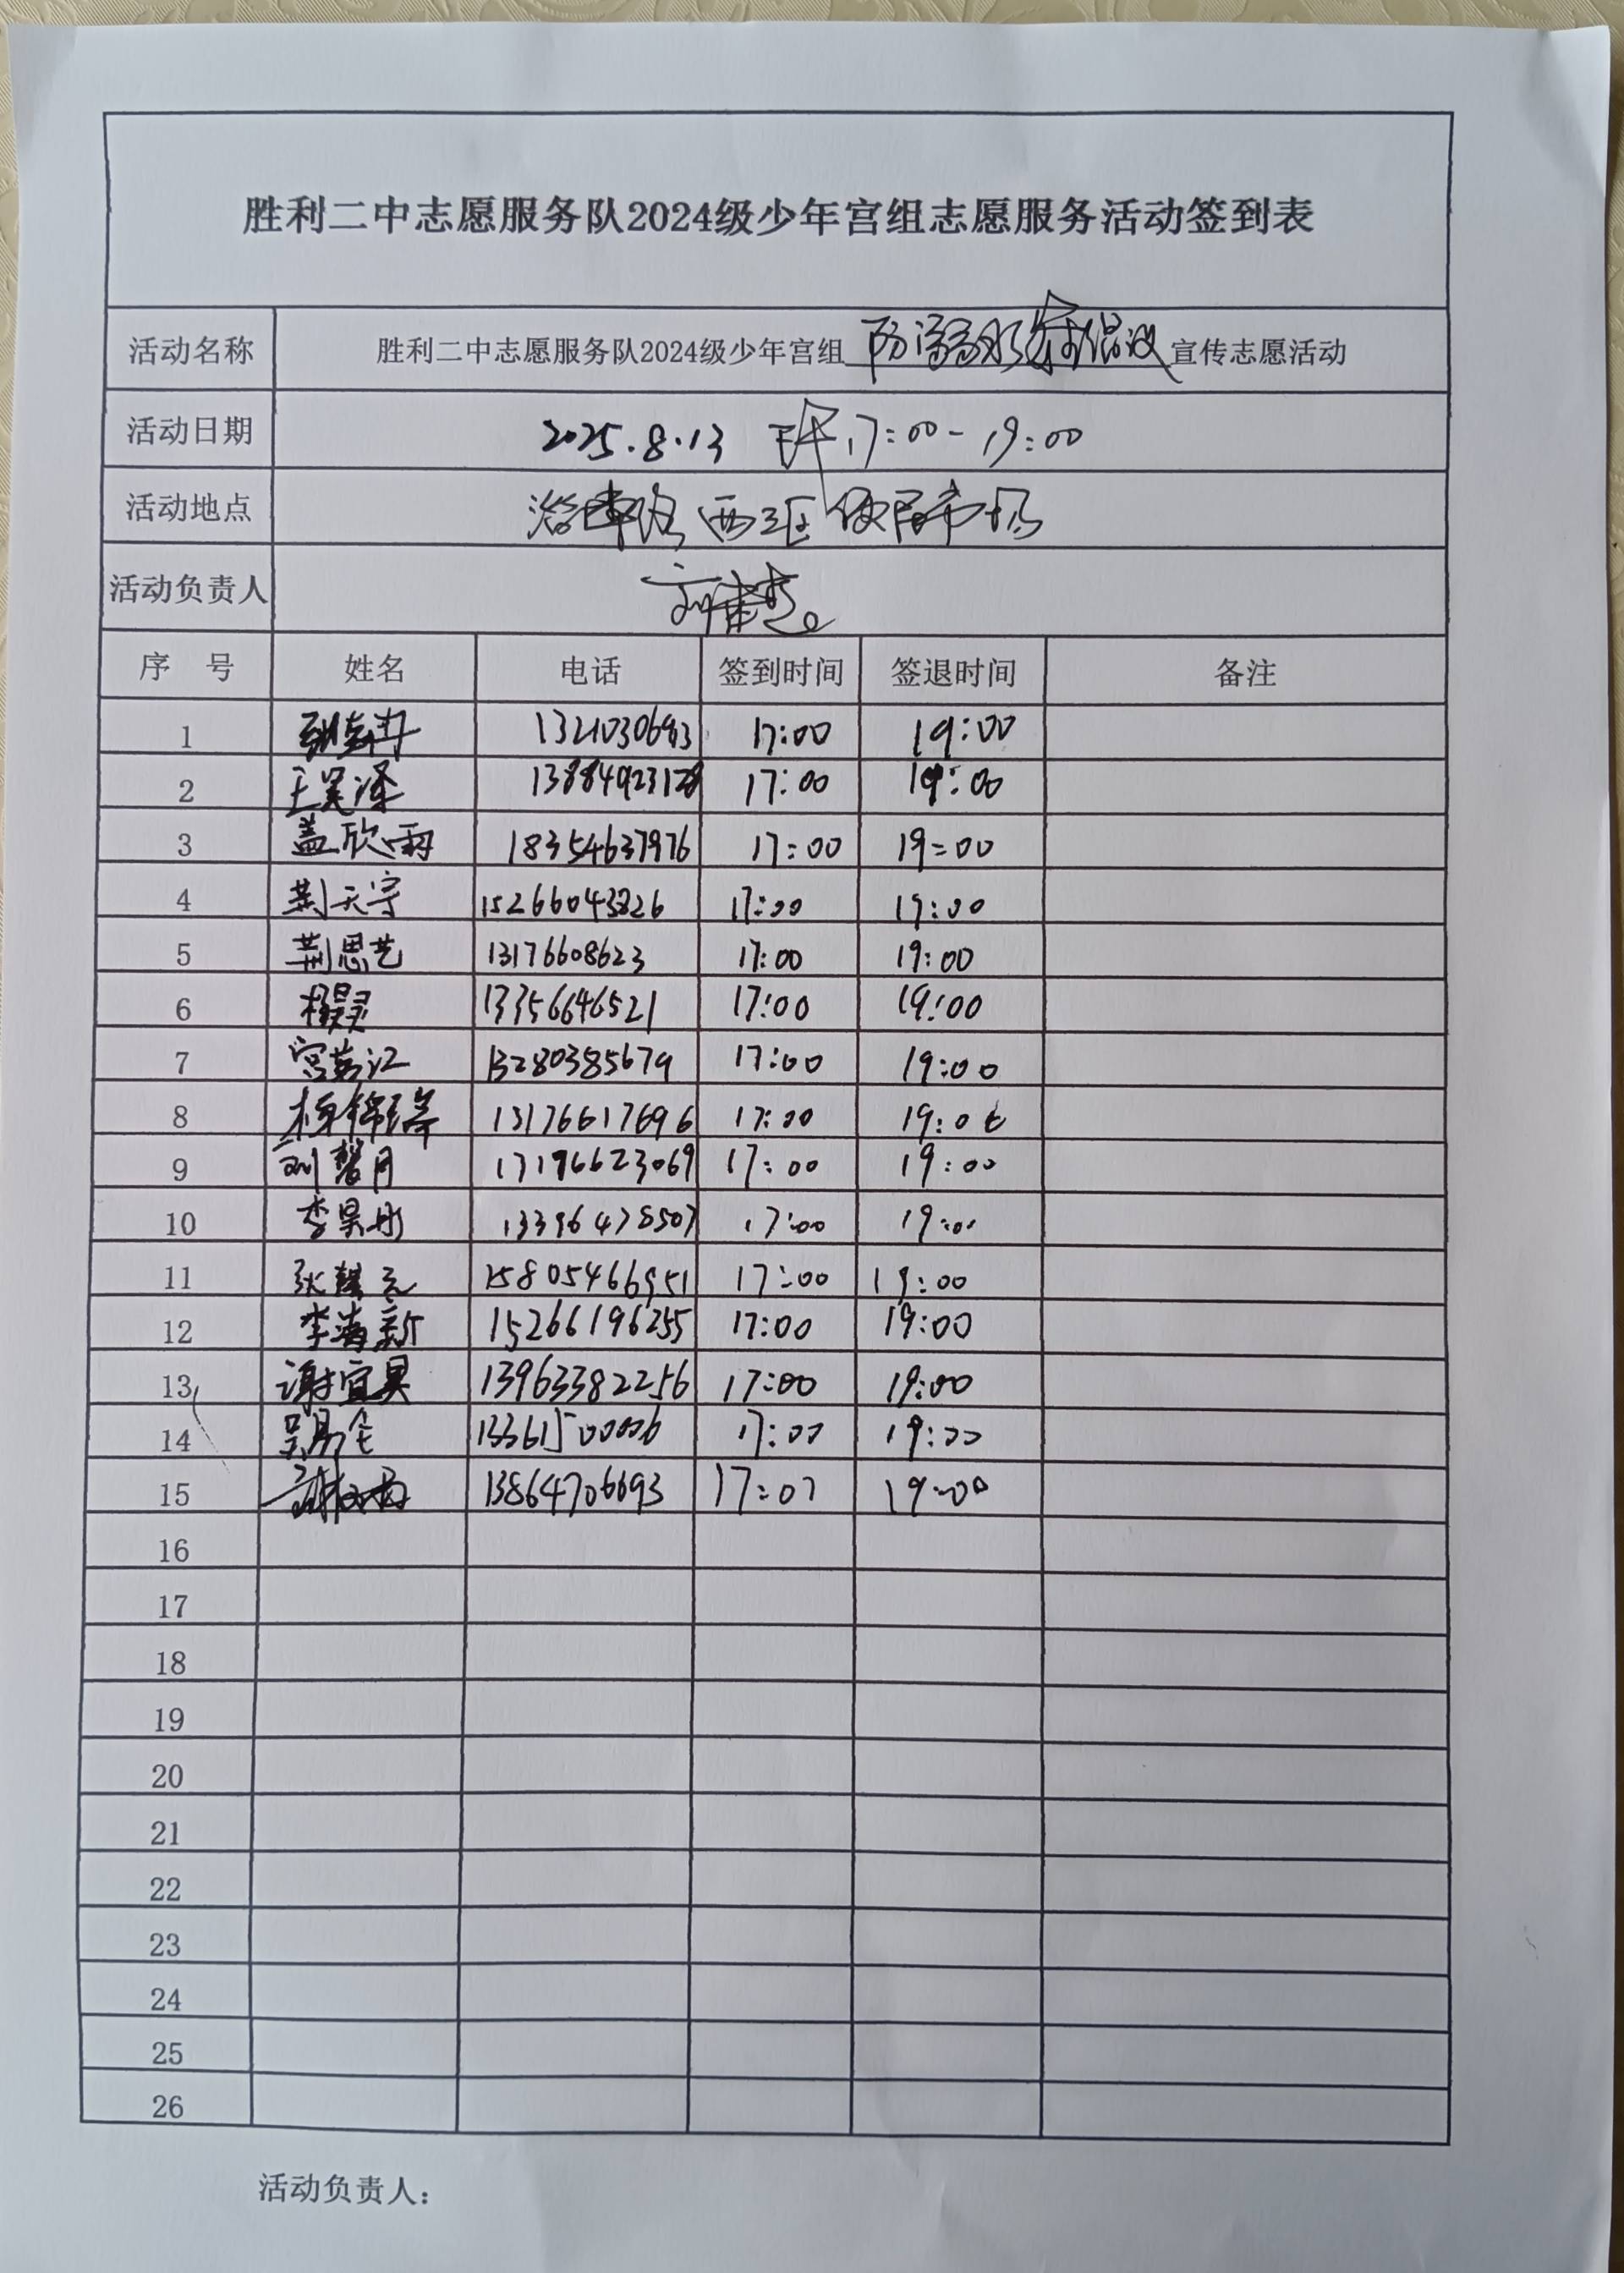 胜利二中志愿服务队2024级少年宫组志愿服务活动签到表
活动名称 胜利二中志愿服务队2024级少年宫组 防溺水 宣传志愿活动
活动日期 2025.8.13 下午17:00-19:00
活动地点 西三区便民市场
活动负责人
序 号 姓名 电话 签到时间 签退时间 备注
1 17:00 19:00
2 王昊泽 13884923128 17:00 19:00
3 盖欣雨 18354637976 17:00 19=00
4 荆天宇 15266043826 17:00 19:00
5 荆思艺 13176608623 17:00 19:00
6 13356646521 17:00 19:00
7 13280385679 17:00 19:00
8 13176617696 17:00 19:00
9 刘馨月 17:00 19:00
10 李昊彤 13396478507 17:00 19:00
11 15805466951 17:00 19:00
12 李海新 15266196255 17:00 19:00
13 谢宜具 13963382256 17:00 19:00
14 17:00 19:00
15 13864706693 17:07 19:00
16
17
18
19
20
21
22
23
24
25
26
活动负责人：